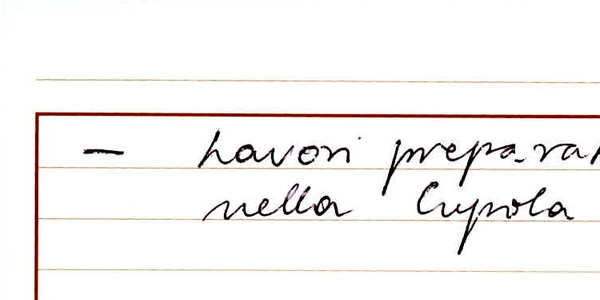 — Lavori prepara
nella Cupola